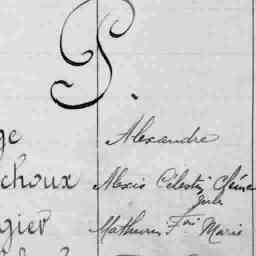 P.
ge Alexandre
choux Alexis Célestin
gier Mathurin Fois Marie